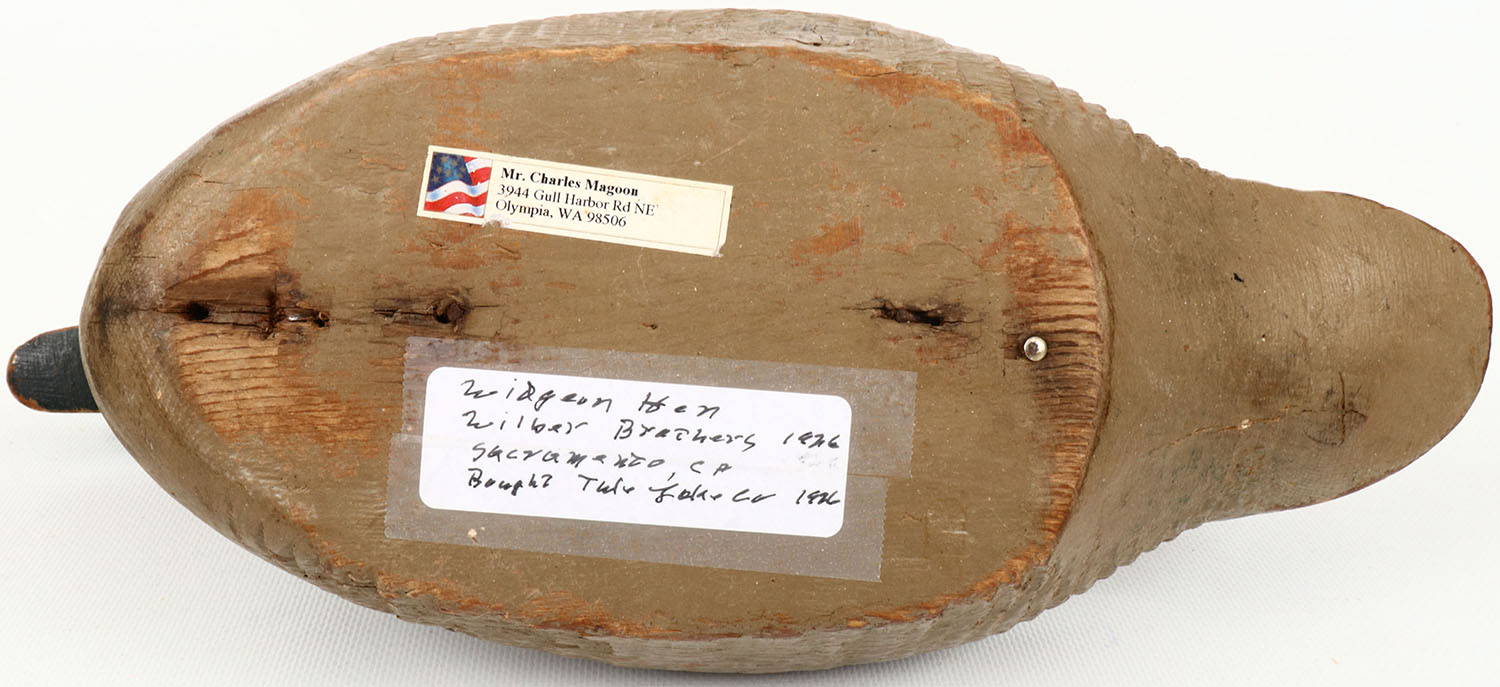 Mr. Charles Magoon
3944 Gull Harbor Rd NE
Olympia, WA 98506
Widgeon Hen
Wilber Brothers 1926
Sacramento, CA
Bought Tule Lake Ca 1926